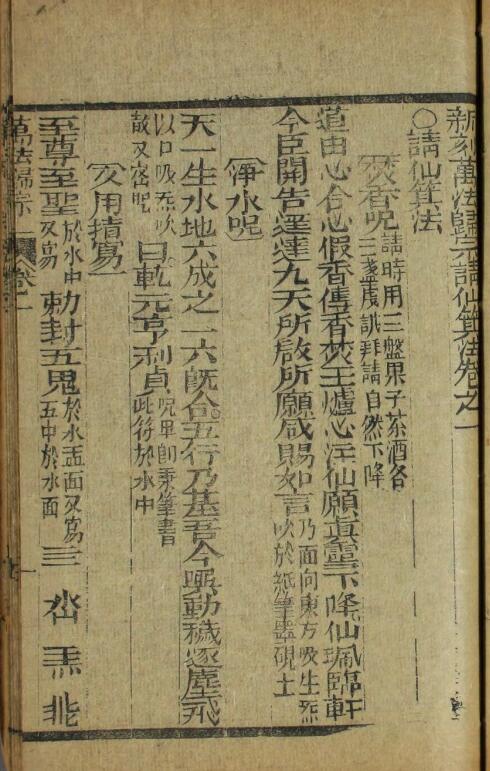 新刻萬法歸宗請仙箕法卷之一
○請仙箕法
焚香呪 請時用三盤果子茶酒各三盞虔誠拜請自然下降
道由心合心假香傳香焚玉爐心注仙願真靈下降仙珮臨軒
今臣關告逕達九天所啟所願咸賜如言 乃面向東方吸生炁吹於紙筆墨硯上
淨水呪
天一生水地六成之一六既合五行乃基吾今興動穢逐塵飛
以口吸炁吹故又密呪 曰乾元亨利貞 呪畢即秉筆書此符於水中
又用指寫
至尊至聖 於水中又寫 勅封五鬼 於水盂面又寫五中於水面
萬法歸宗 卷一